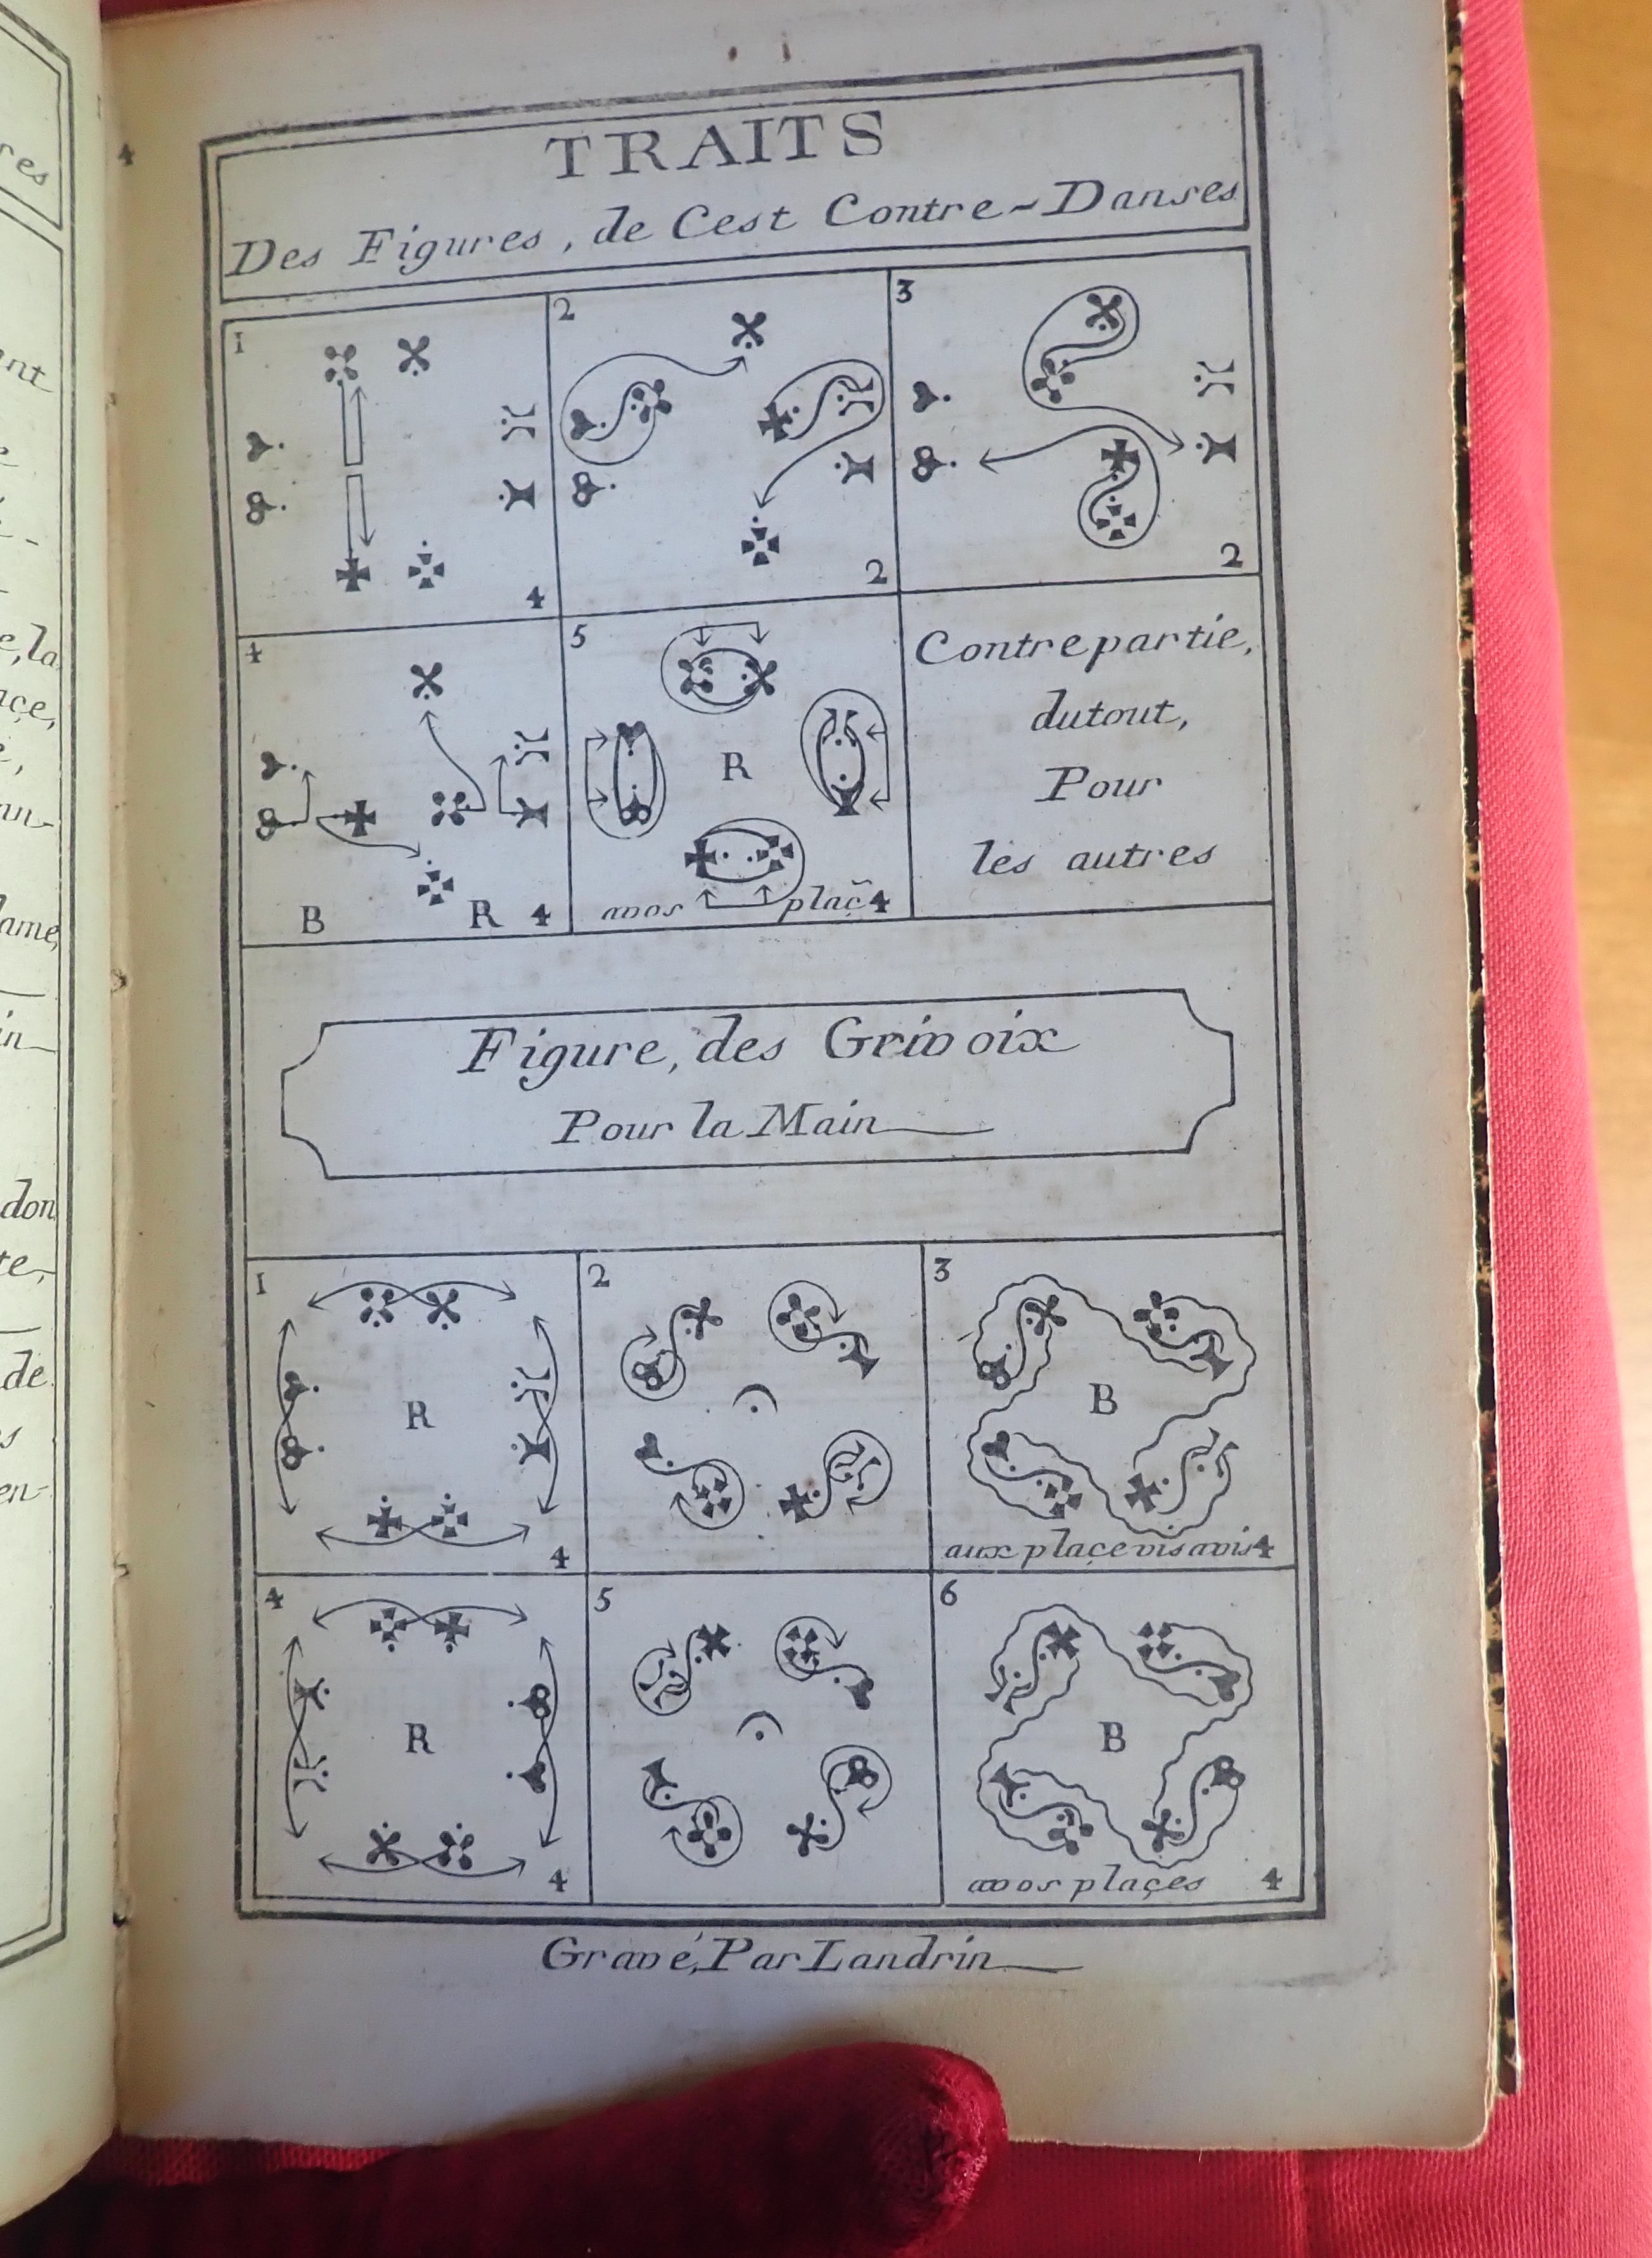 res
nt
e, la
açe,
ame,
in
don
te,
de
s
en-
4
TRAITS
Des Figures, de Cest Contre-Danses
1
4
2
2
3
2
4
B R 4
5
R
avos plaç̃ 4
Contrepartie,
dutout,
Pour
les autres
Figure, des Grivoix
Pour la Main
1
R
4
2
3
B
aux plaçe vis avis 4
4
R
4
5
6
B
avos plaçes 4
Gravé, Par Landrin